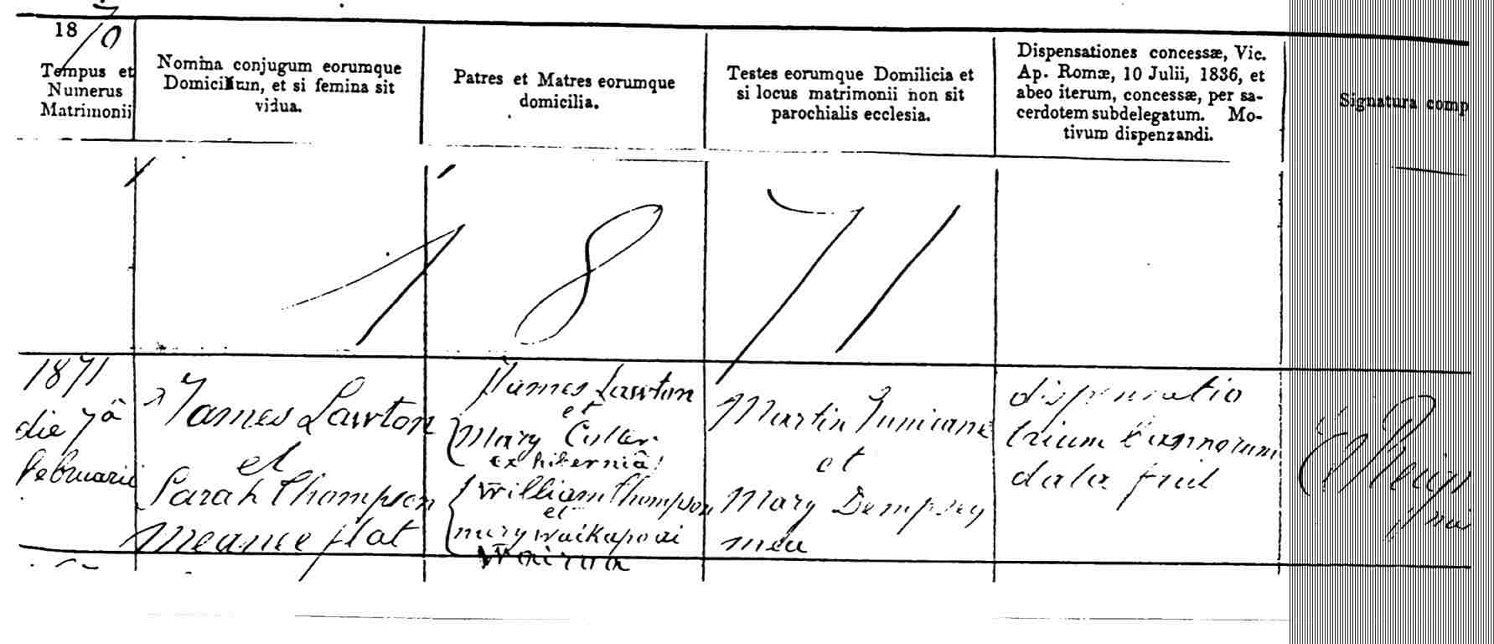 1870
Tempus et
Numerus
Matrimonii
Nomina conjugum eorumque
Domicilium, et si femina sit
vidua.
Patres et Matres eorumque
domicilia.
Testes eorumque Domilicia et
si locus matrimonii non sit
parochialis ecclesia.
Dispensationes concessæ, Vic.
Ap. Romæ, 10 Julii, 1836, et
abeo iterum, concessæ, per sa-
cerdotem subdelegatum. Mo-
tivum dispenzandi.
Signatura comp
1871
1871
die 7â
Februarii
James Lawton
et
Sarah Thompson
Meanee flat
James Lawton
et
Mary Culter
ex hiberniâ
William Thompson
et
mary Waikapoai
Wairoa
Martin
et
Mary Dempsey
dispensatio
trium bannorum
data fuit